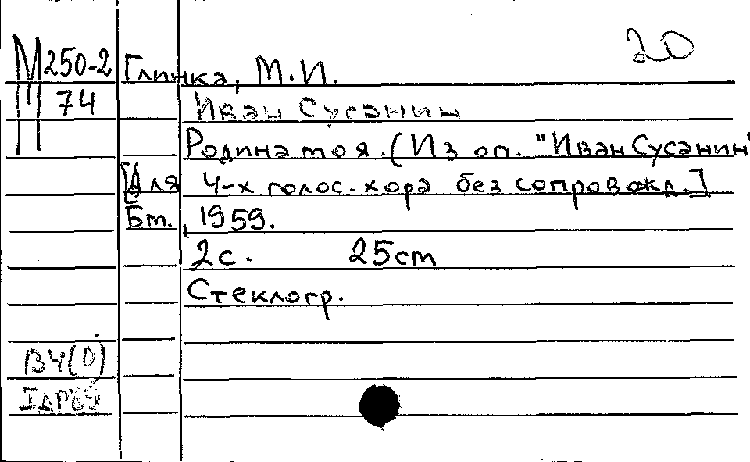 20
М 250-2 Глинка, М.И.
74 Иван Сусанин
Родина моя. (Из оп. "Иван Сусанин"
[Для 4-х голос. хора без сопровожд.]
Бт., 1959.
2с. 25cm
Стеклогр.
ВЧ(0)